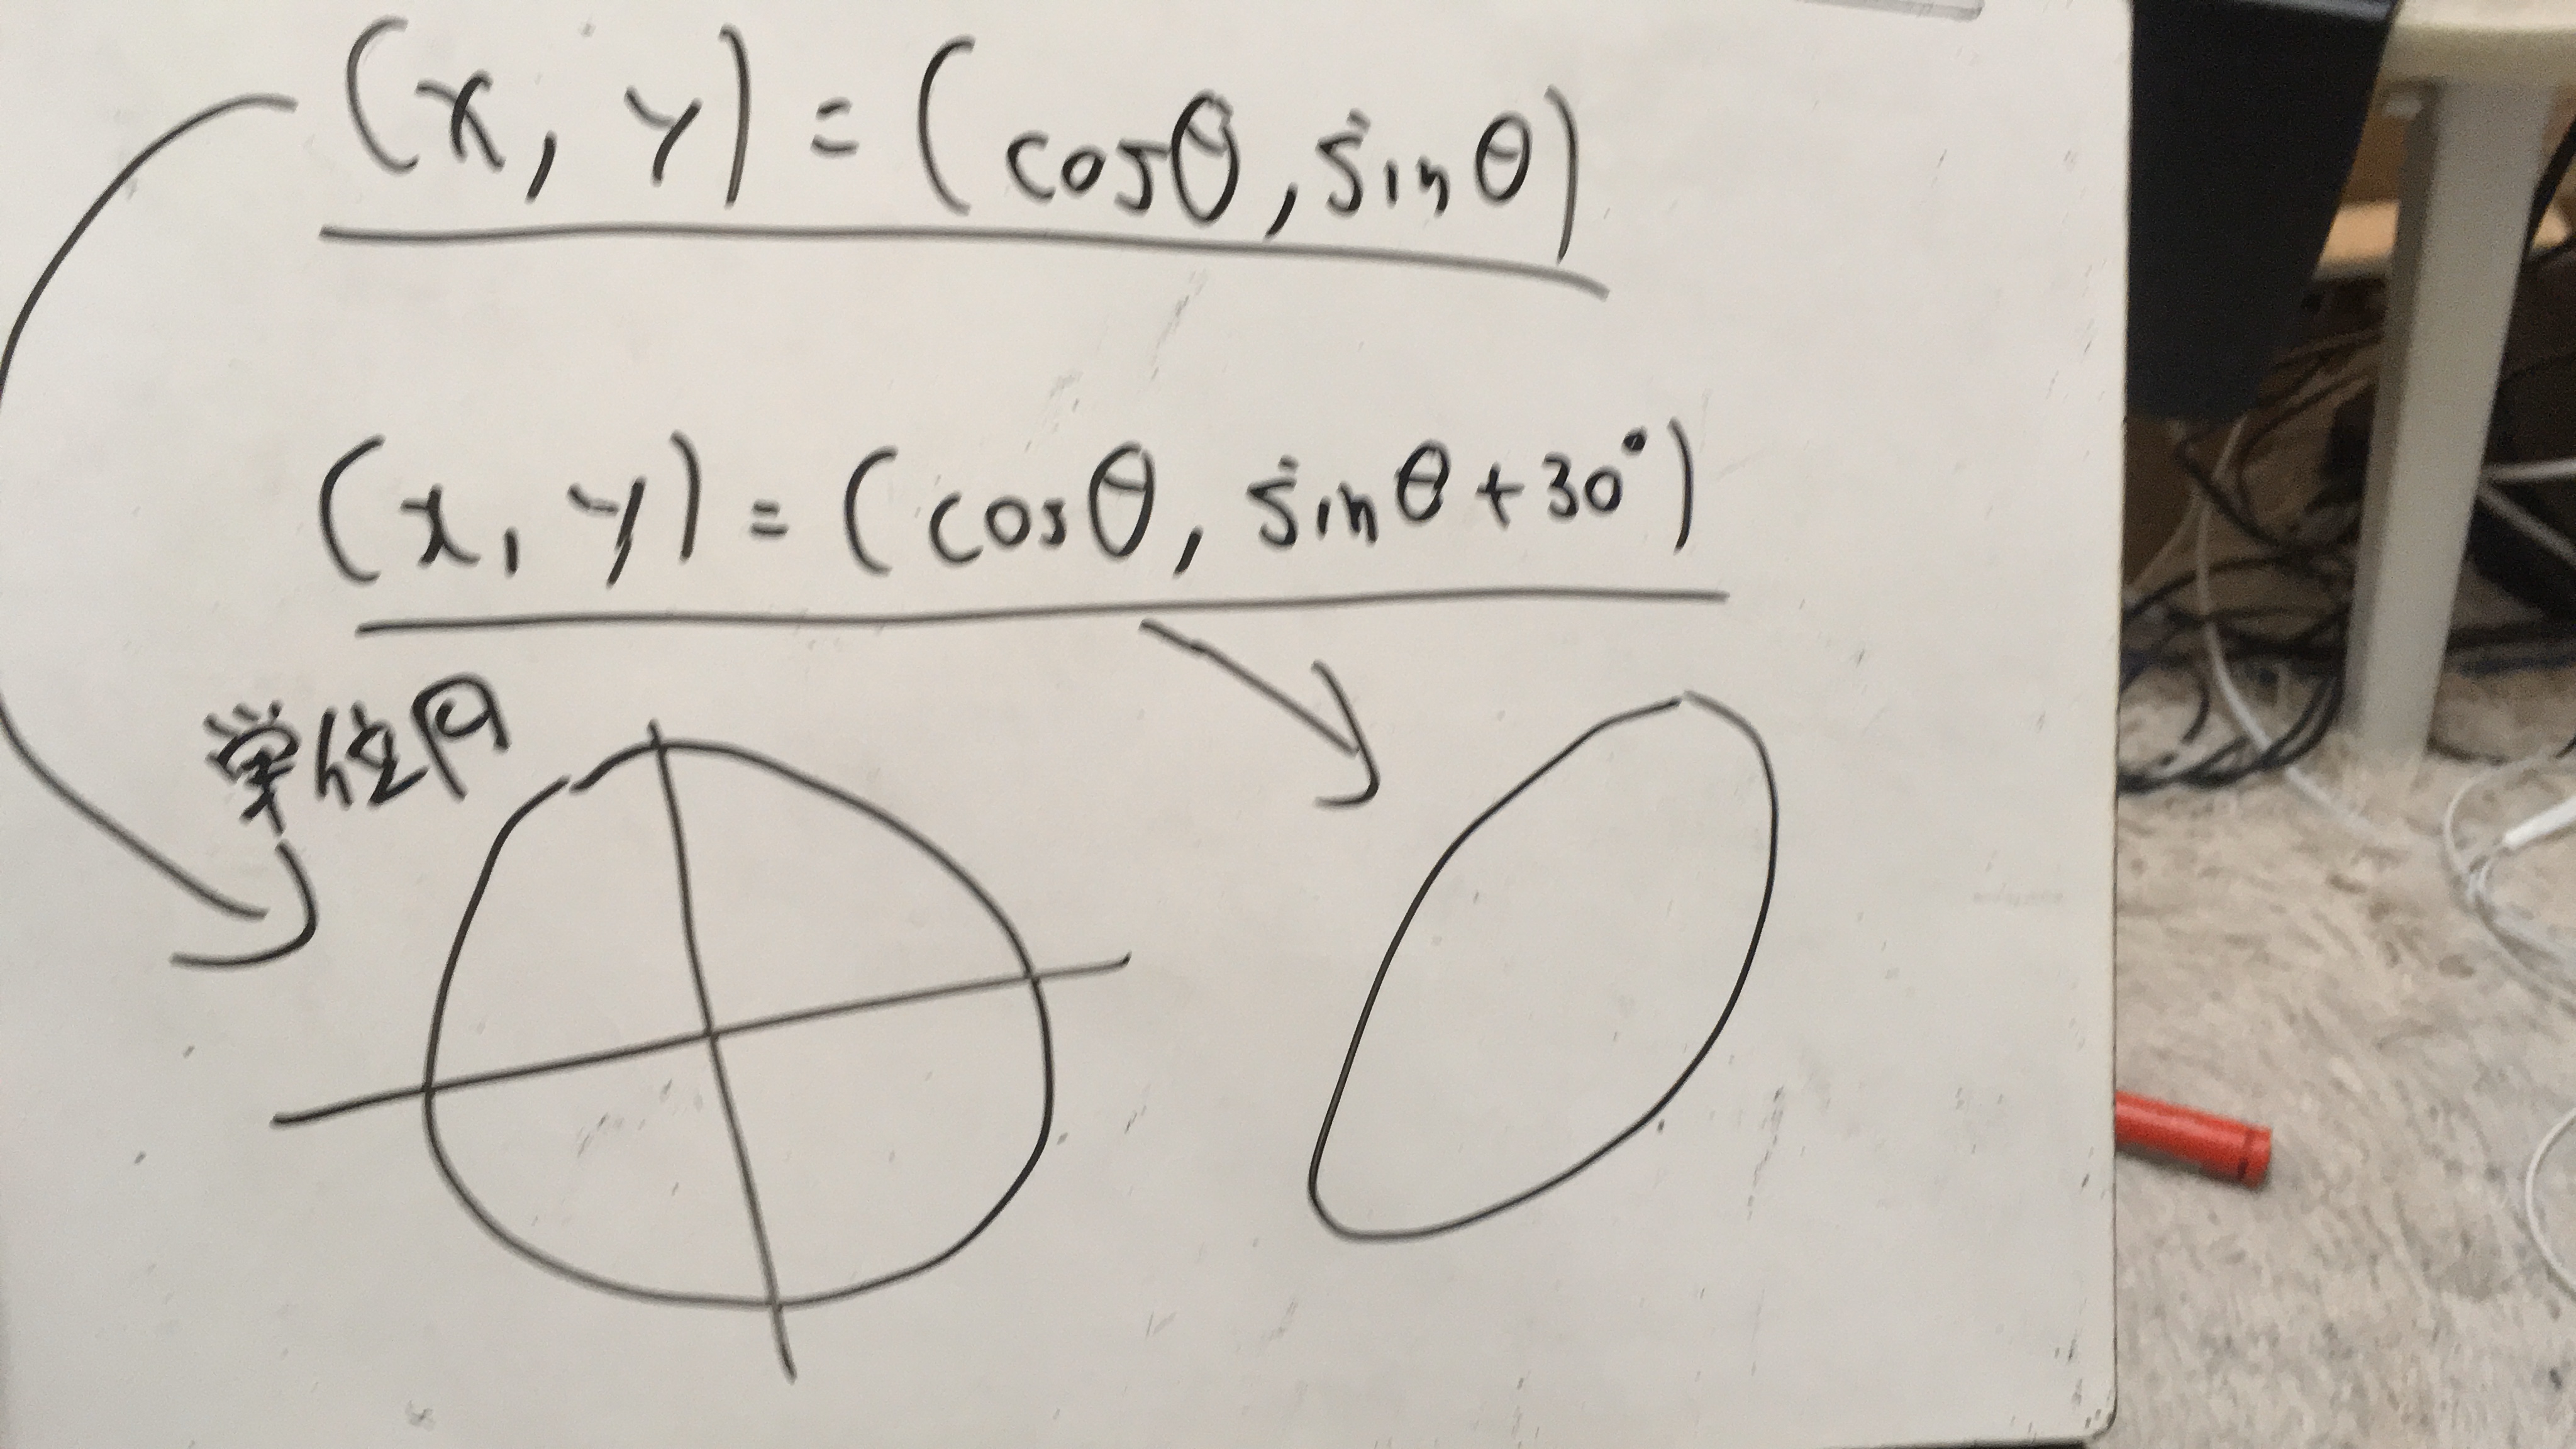 (x, y) = (cosθ, sinθ)
(x, y) = (cosθ, sinθ+30°)
単位円